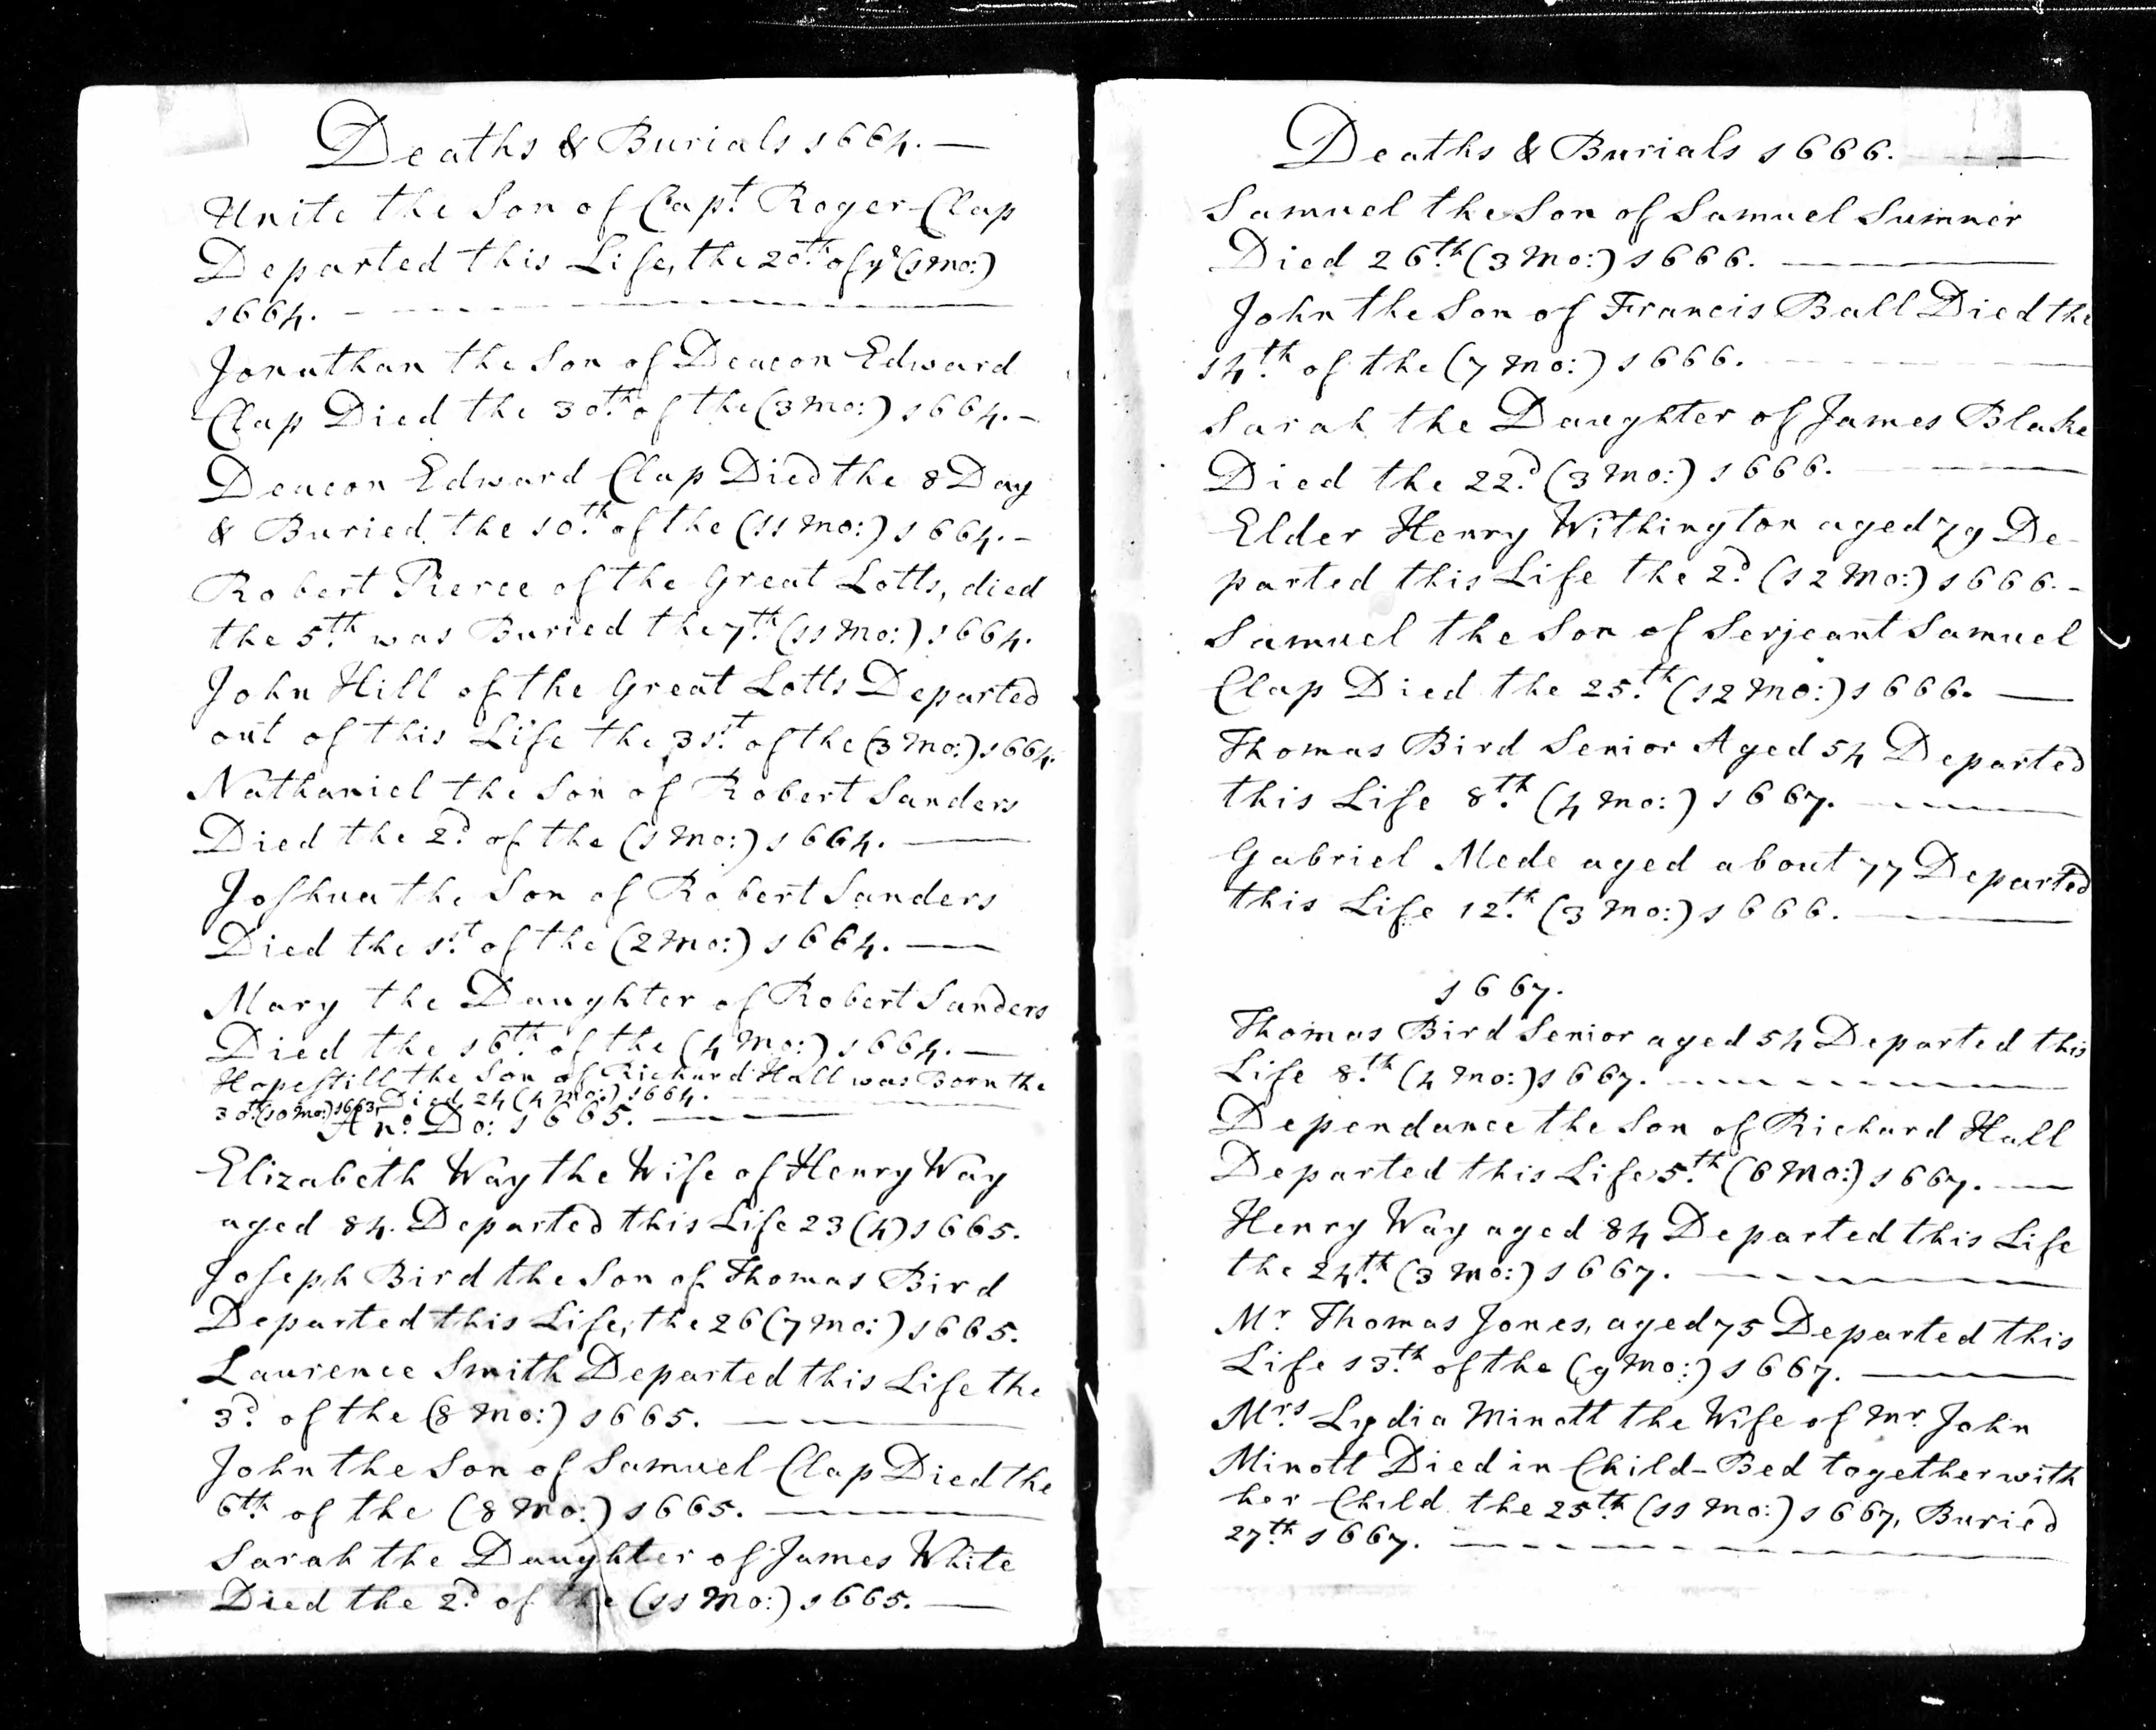 Deaths & Burials 1664. —
Unite the Son of Capt. Roger Clap
Departed this Life, the 20th. of ye (1 mo:)
1664. — — — — — —
Jonathan the Son of Deacon Edward
Clap Died the 30th. of the (3 mo:) 1664. –
Deacon Edward Clap Died the 8 Day
& Buried the 10th. of the (11 mo:) 1664. –
Robert Pierce of the Great Lotts, died
the 5th. was Buried the 7th. (11 Mo:) 1664.
John Hill of the Great Lotts Departed
out of this Life the 31st. of the (3 mo:) 1664.
Nathaniel the Son of Robert Sanders
Died the 2d. of the (1 mo:) 1664. —
Joshua the Son of Robert Sanders
Died the 1st. of the (2 mo:) 1664. —
Mary the Daughter of Robert Sanders
Died the 16th. of the (4 Mo:) 1664. —
Hopestill the Son of Richard Hall was Born the
30th. (10 mo:) 1663, Died 24 (4 mo:) 1664. —
Ano. Do: 1665. — —
Elizabeth Way the Wife of Henry Way
aged 84. Departed this Life 23 (4) 1665.
Joseph Bird the Son of Thomas Bird
Departed this Life, the 26 (7 mo:) 1665.
Laurence Smith Departed this Life the
3d. of the (8 mo:) 1665. — — —
John the Son of Samuel Clap Died the
6th. of the (8 mo:) 1665. — —
Sarah the Daughter of James White
Died the 2d. of the (11 mo:) 1665. —
Deaths & Burials 1666. — —
Samuel the Son of Samuel Sumner
Died 26th. (3 Mo:) 1666. —
John the Son of Francis Ball Died the
14th. of the (7 mo:) 1666. — — —
Sarah the Daughter of James Blake
Died the 22d. (3 mo:) 1666. — —
Elder Henry Withington aged 79 De-
parted this Life the 2d. (12 Mo:) 1666. –
Samuel the Son of Serjeant Samuel
Clap Died the 25th. (12 mo:) 1666. —
Thomas Bird Senior Aged 54 Departed
this Life 8th. (4 mo:) 1667. — — —
Gabriel Mede aged about 77 Departed
this Life 12th. (3 mo:) 1666. —
1667.
Thomas Bird Senior aged 54 Departed this
Life 8th. (4 mo:) 1667. — — — —
Dependance the Son of Richard Hall
Departed this Life 5th. (6 Mo:) 1667. —
Henry Way aged 84 Departed this Life
the 24th. (3 mo:) 1667. — — — —
Mr. Thomas Jones, aged 75 Departed this
Life 13th. of the (9 mo:) 1667. —
Mrs. Lydia Minott the Wife of Mr. John
Minott Died in Child-Bed together with
her Child the 25th. (11 mo:) 1667, Buried
27th. 1667. — — — — —